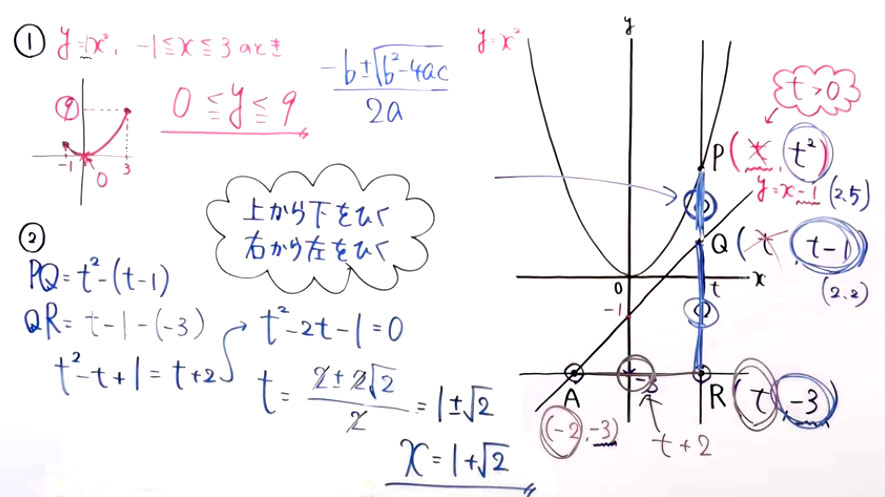 ① y=1x², -1≦x≦3
0≦y≦9
9
-1
0
3
-b±√b²-4ac
2a
上から下をひく
右から左をひく
②
PQ=t²-(t-1)
QR=t-1-(-3)
t²-t+1=t+2
t²-2t-1=0
t=2±2√2/2=1±√2
x=1+√2
y=x²
y
t>0
P(t, t²)
y=x-1 (2.5)
Q(t, t-1)
(2.2)
0
t
x
-1
-3
A
R(t, -3)
(-2, -3)
t+2